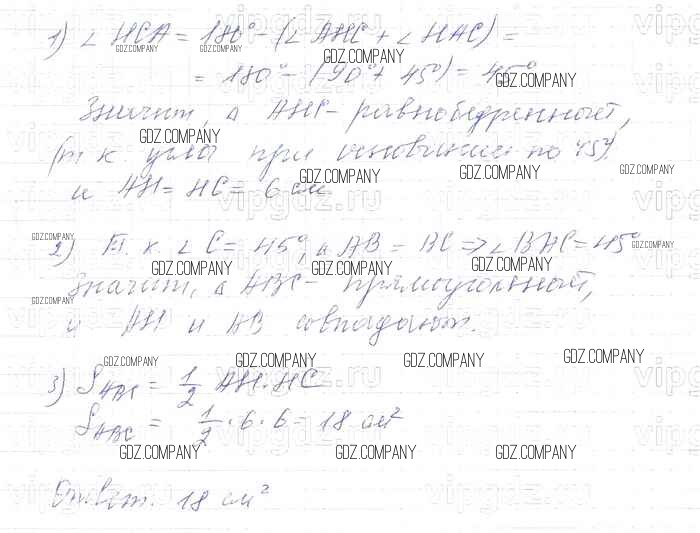 1) ∠HCA = 180° - (∠AHC + ∠HAC) =
= 180° - (90° + 45°) = 45°
Значит, △ AHC - равнобедренный,
(т. к. углы при основании по 45°)
и AH = HC = 6 см
2) Т. к. ∠C = 45°, и AB = BC => ∠BAC = 45°
Значит, △ ABC - прямоугольный,
и AH и AB совпадают.
3) S ABC = 1/2 AH·HC
S ABC = 1/2 · 6 · 6 = 18 см²
Ответ. 18 см²
GDZ.COMPANY
vipgdz.ru